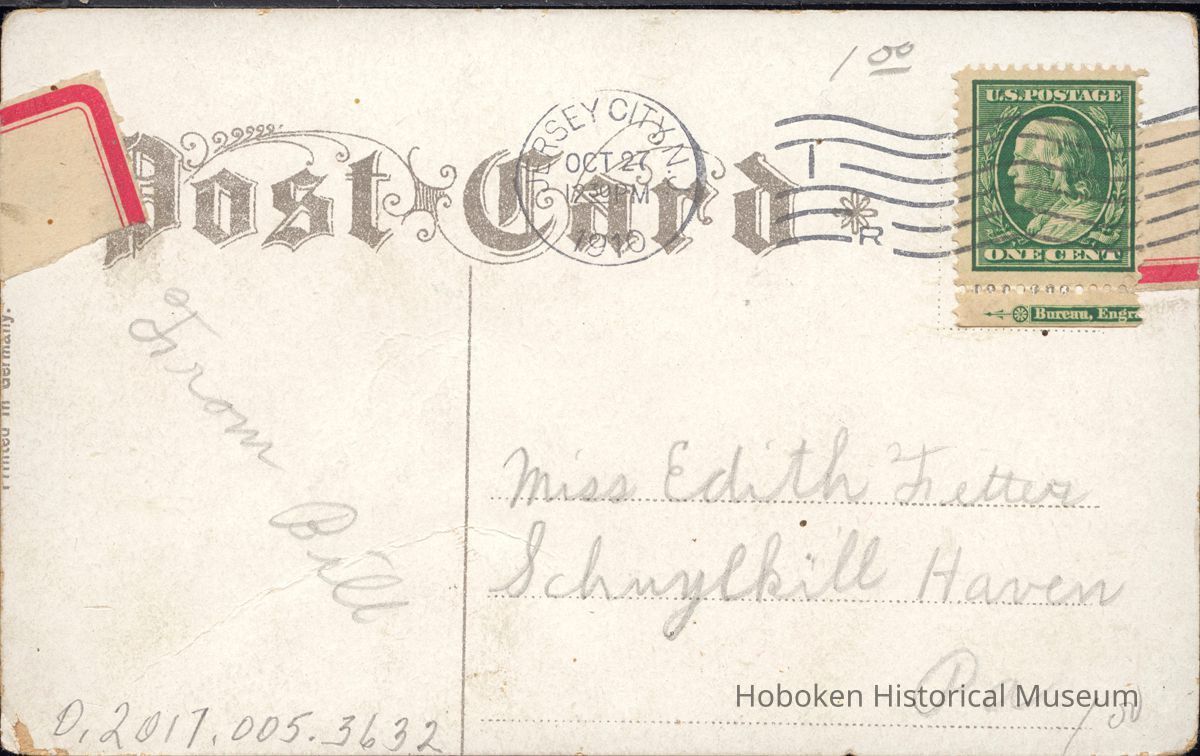 1 00
JERSEY CITY, N.J.
OCT 27
12 30 PM
1910
I
R
U.S. POSTAGE
ONE CENT
Bureau, Engra
Post Card
Printed in Germany.
From
Bill
Miss Edith Fetter
Schuylkill Haven
Pa
Hoboken Historical Museum
1 50
D.2017.005.3632